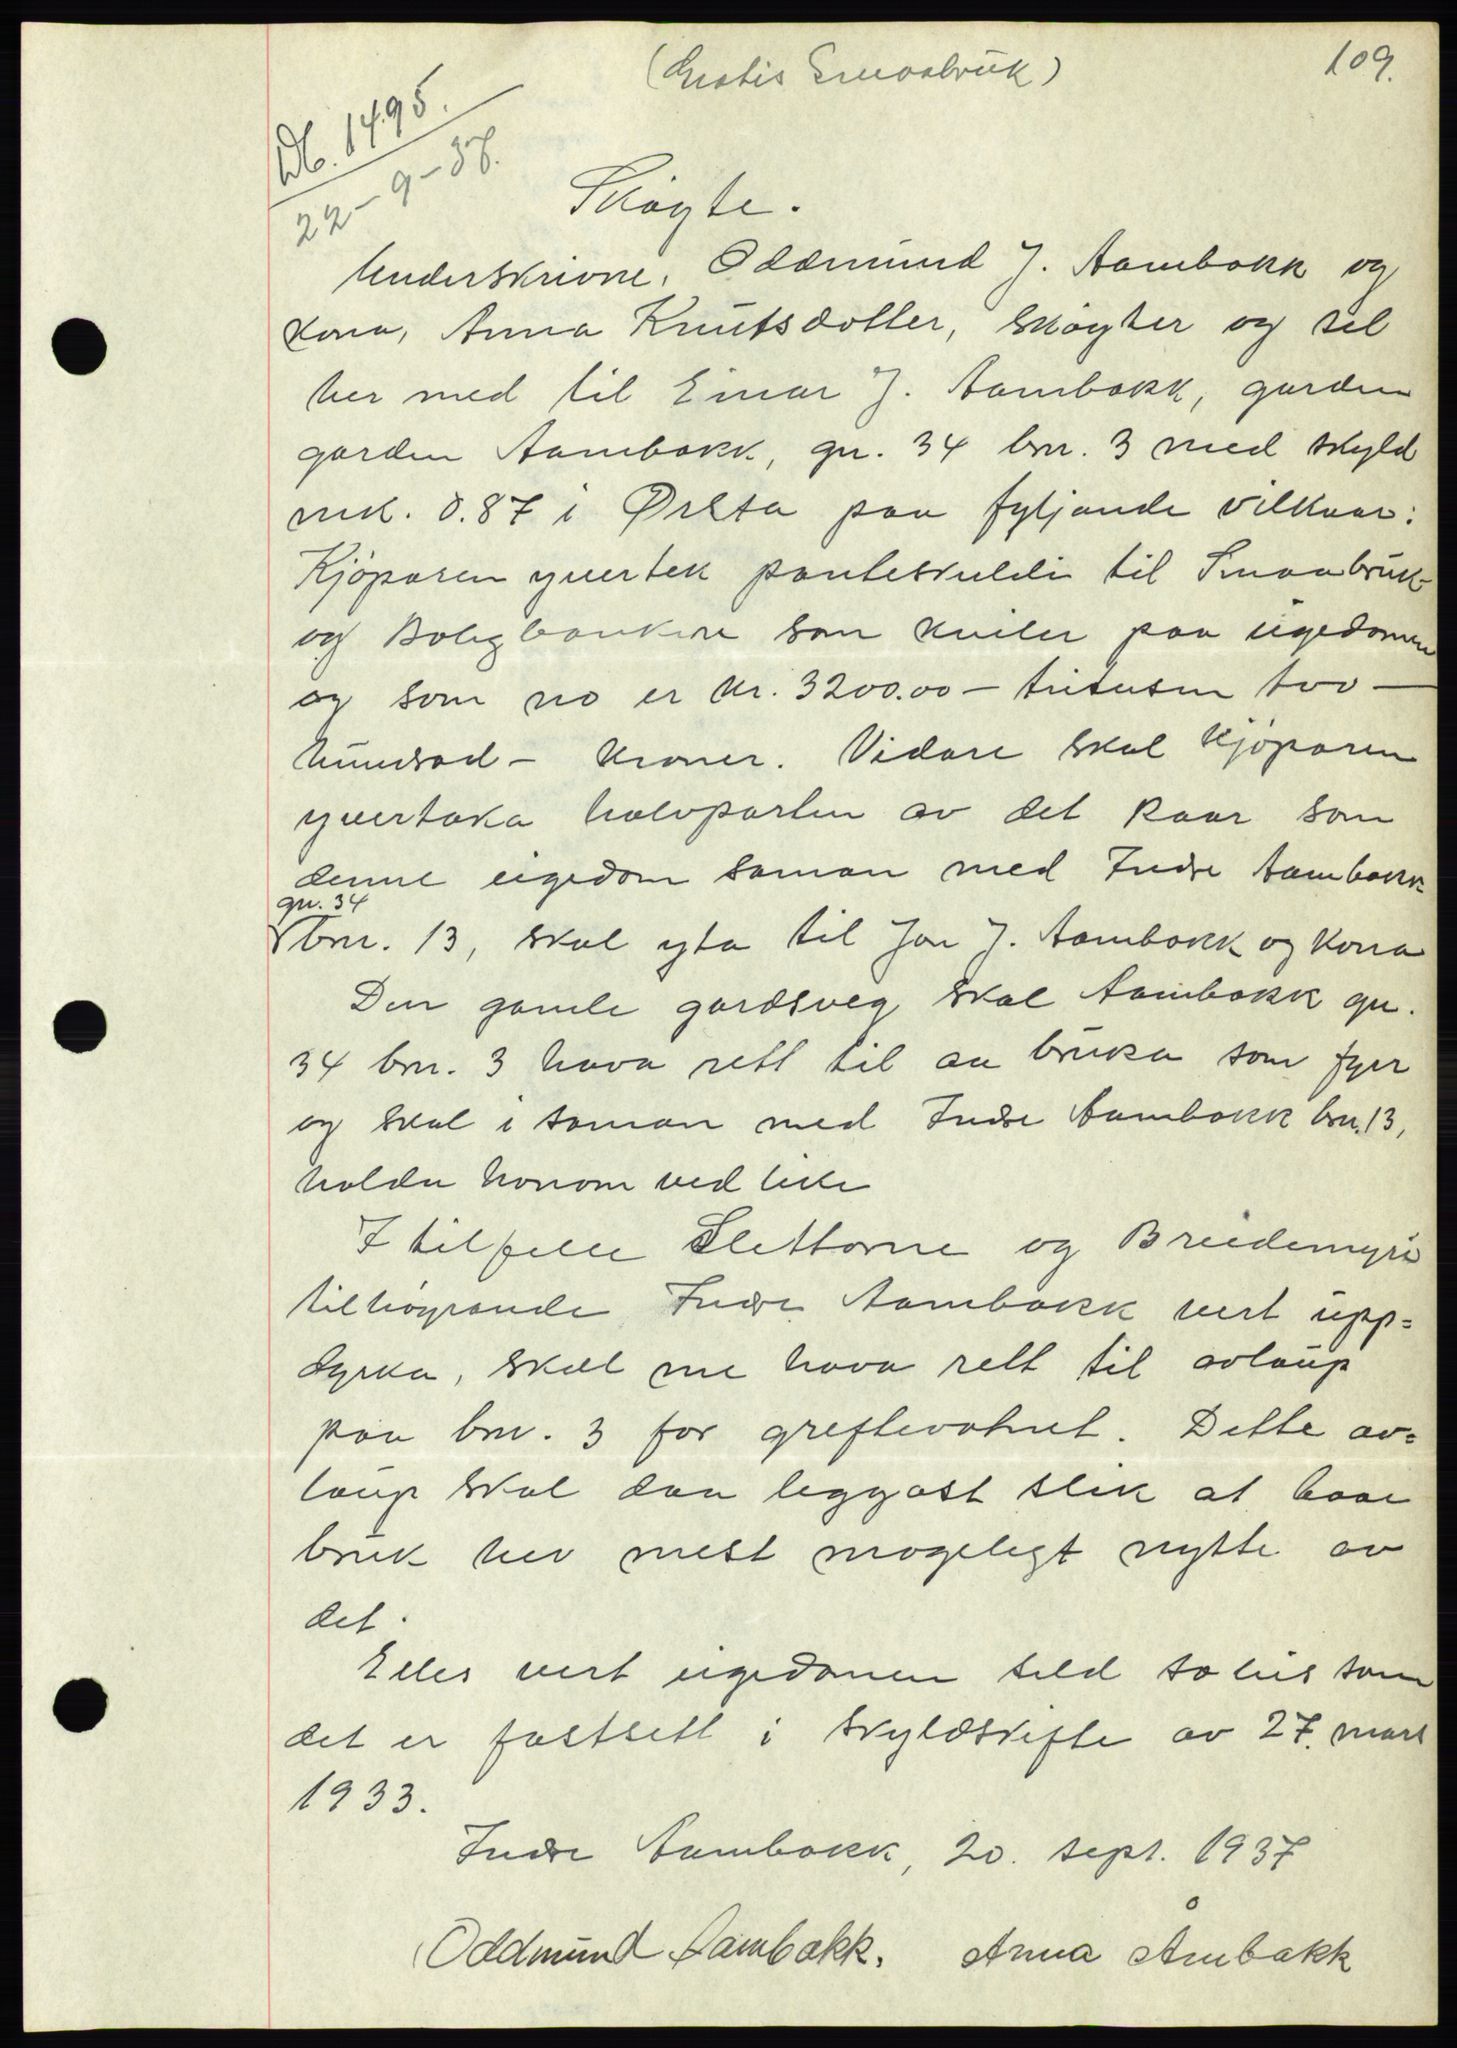 (Gratis Smaabruk)
109.
Db. 1495.
22-9-37.
Skøyte.
Underskrivne, Oddmund J. Aambakk og
kona, Anna Knutsdotter, skøyter og sel
her med til Einar J. Aambakk, garden
garden Aambakk, gn. 34 brn. 3 med skyld
mk. 0.87 i Ørsta paa fyljande vilkaar:
Kjøparen yvertek panteskuldi til Smaabruk-
og Boligbanken som kviler paa eigedomen
og som no er kr. 3200.00 - trituson two -
hundrad - kroner. Vidare skal kjøparen
yvertaka halvparten av det kaar som
denne eigedom saman med Indre Aambakk
gn. 34
brn. 13, skal yta til Jon J. Aambakk og kona
Den gamle gardsveg skal Aambakk gn.
34 brn. 3 hava rett til aa bruka som fyrr
og skal i saman med Indre Aambakk brn. 13,
halda honom ved like
I tilfelle Slettorne og Breidemyri
tilhøyrande Indre Aambakk vert upp=
dyrka, skal me hava rett til avlaup
paa brn. 3 for greftevatnet. Dette av=
laup skal daa leggast slik at baae
bruk hev mest mogelegt nytte av
det.
Elles vert eigedomen seld so leis som
det er fastsett i skyldskifte av 27. mars
1933.
Indre Aambakk, 20. sept. 1937
Oddmund Aambakk. Anna Åmbakk